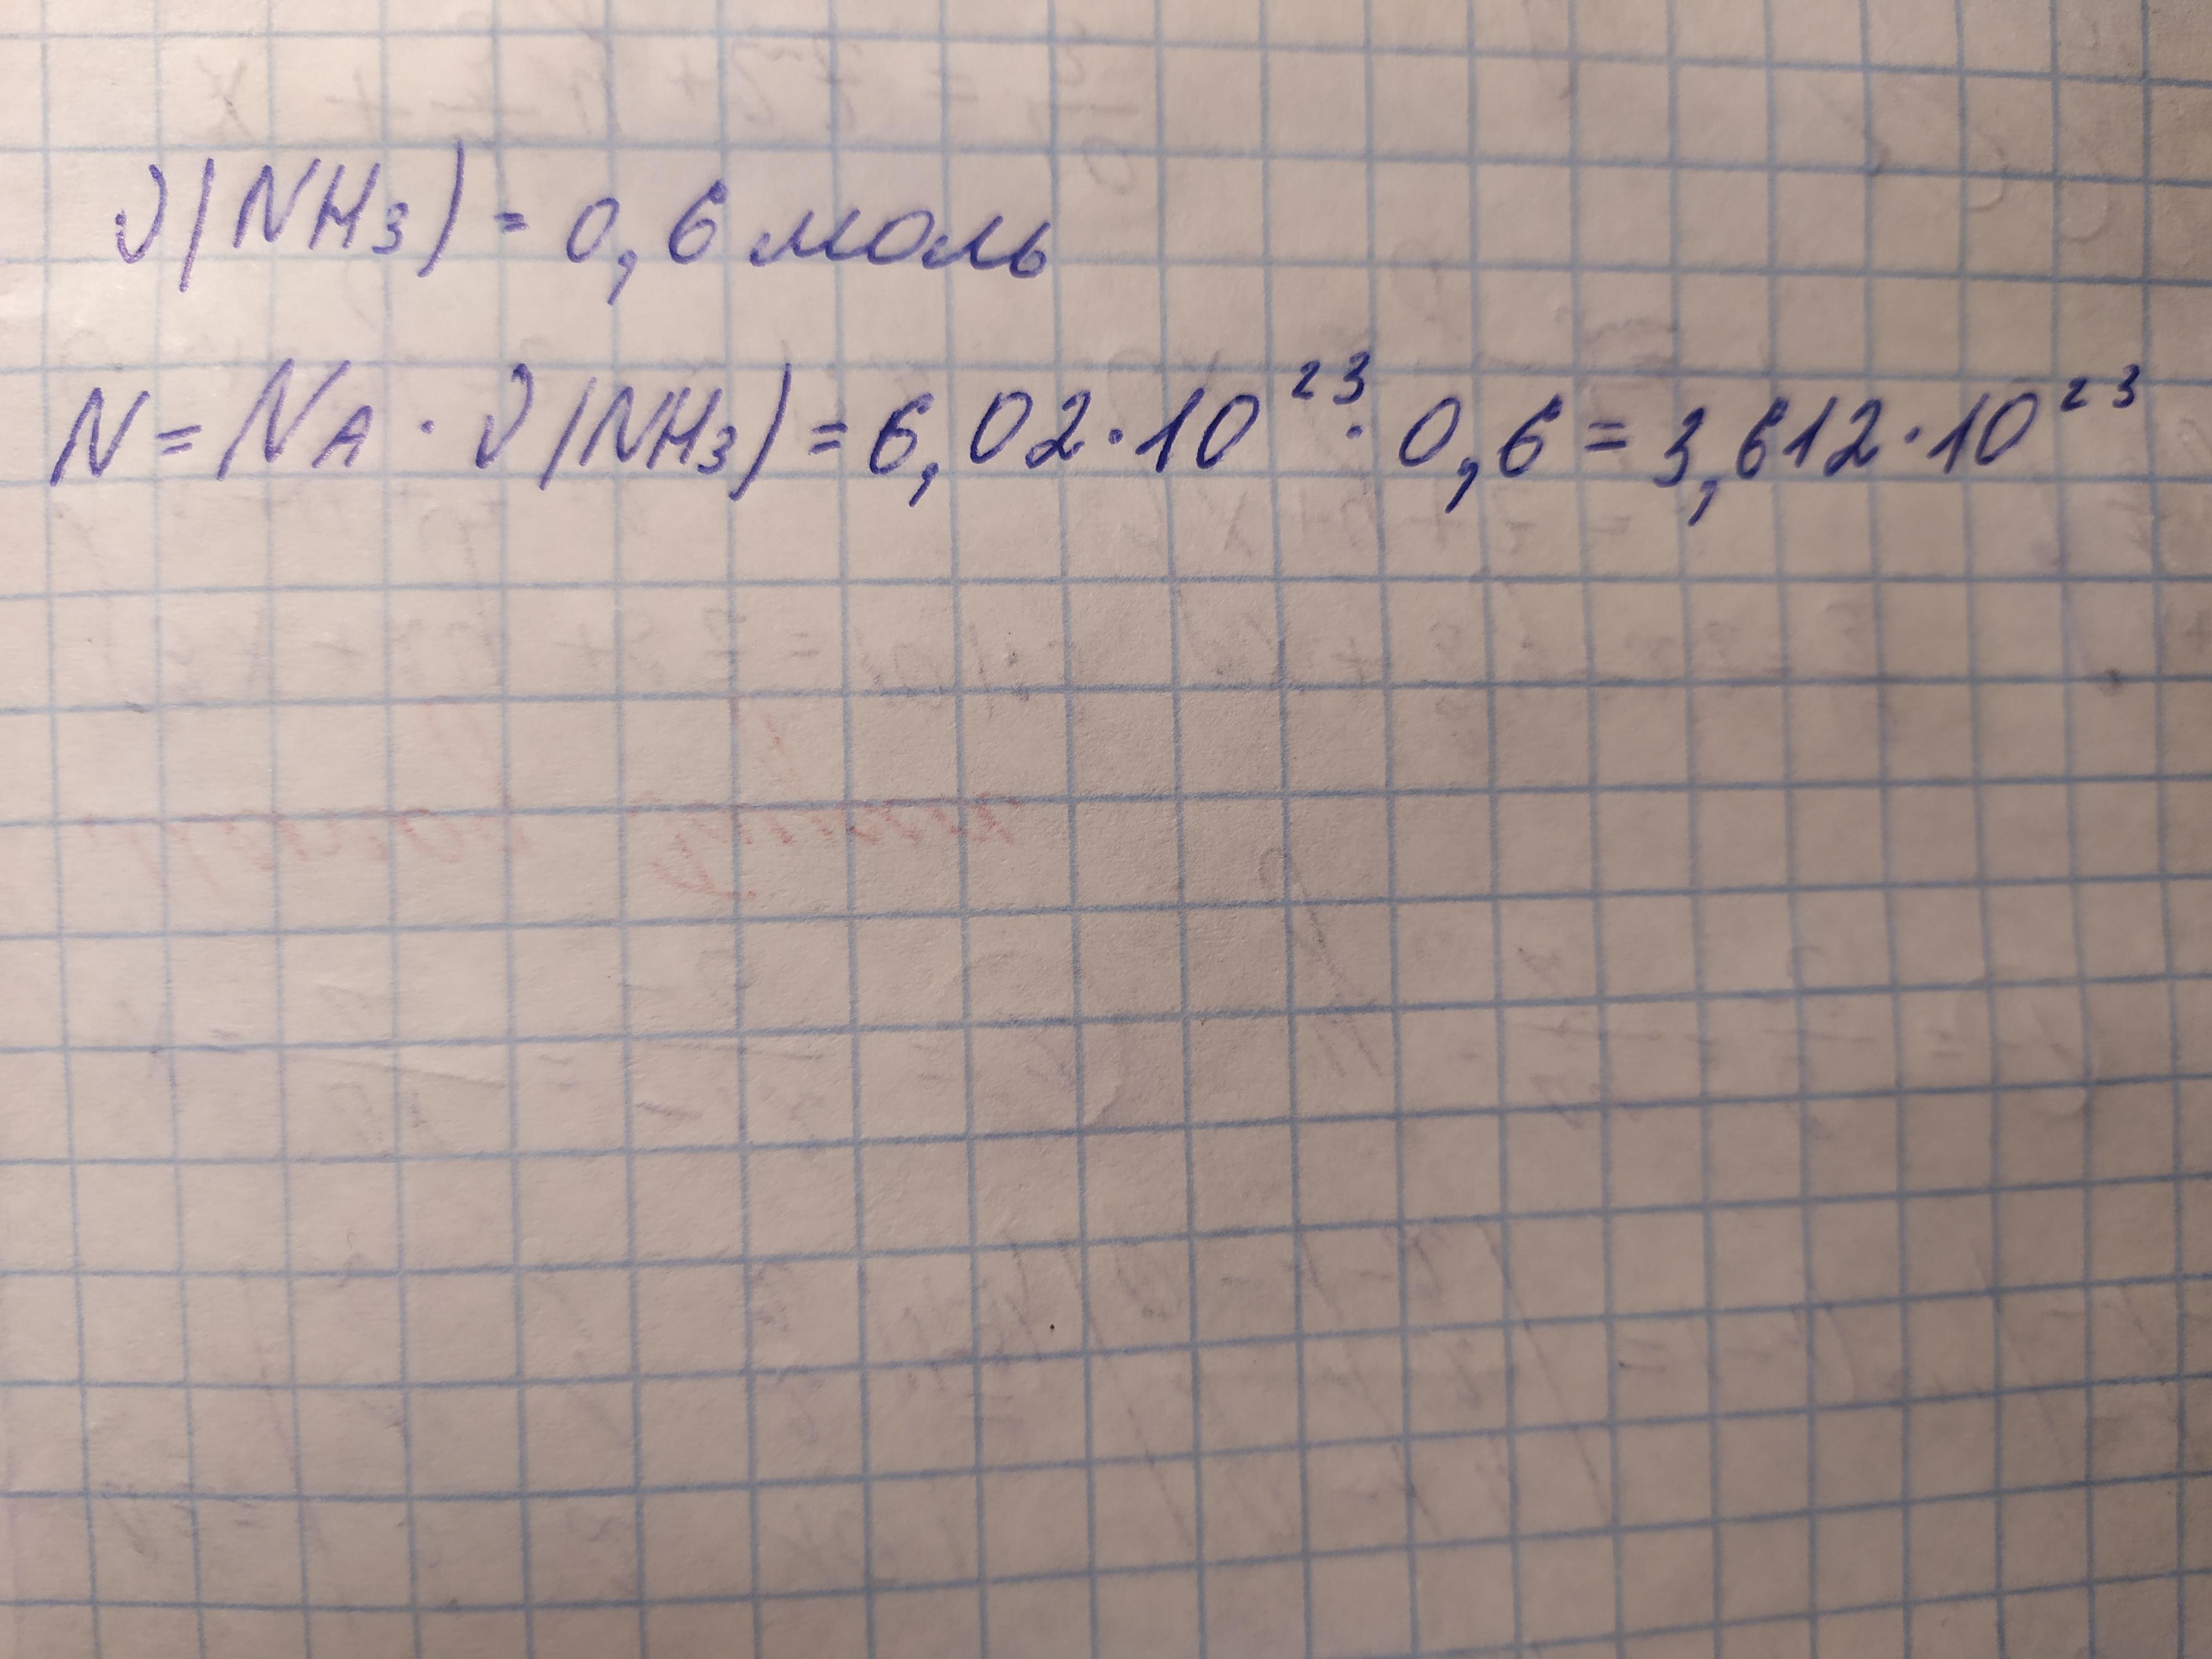 ν(NH₃) = 0,6 моль
N = N_A · ν(NH₃) = 6,02 · 10²³ · 0,6 = 3,612 · 10²³